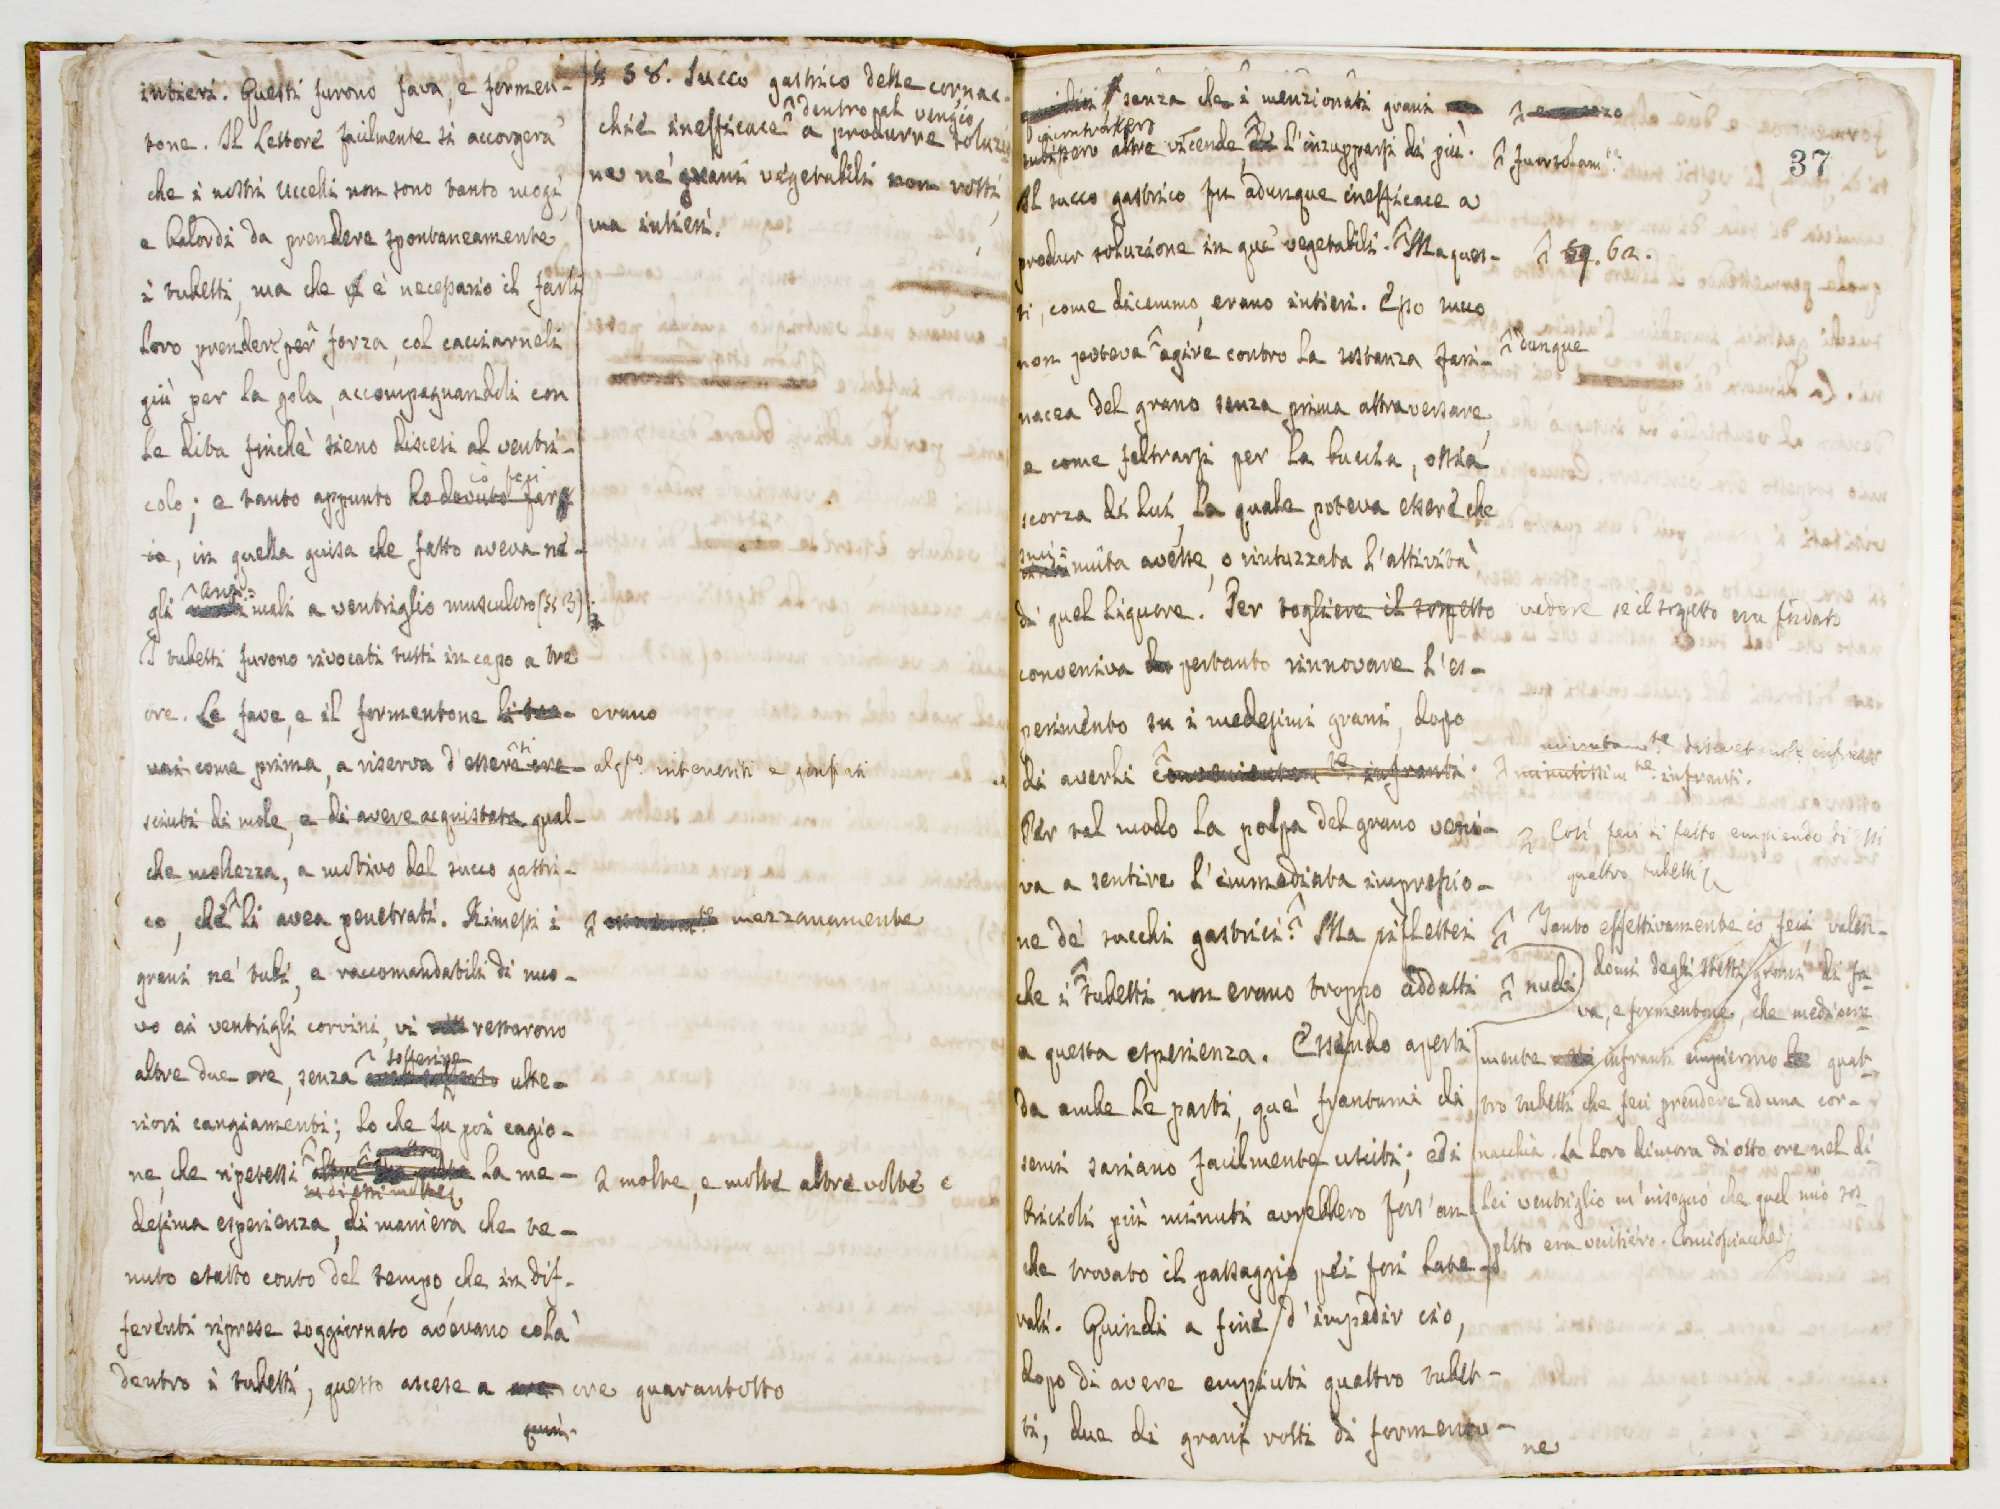 intieri. Questi furono fava, e formen-
tone. Il Lettore facilmente si accorgerà
che i nostri Uccelli non sono tanto mogi,
e balordi da prendere spontaneamente
i tubetti, ma che è necessario il farli
loro prendere per forza, col cacciarneli
giù per la gola, accompagnandoli con
le dita finchè sieno discesi al ventri-
colo; e tanto appunto ho dovuto fare
io feci
io, in quella guisa che fatto aveva ne-
gli animali a ventriglio muscoloso
I tubetti furono rivocati tutti in capo a tre
ore. Le fave, e il formentone li tro-
vai come prima, a riserva d'essere cre-
sciuti di mole, e di avere acquistata qual-
che mollezza, a motivo del succo gastri-
co, che li avea penetrati. Rimessi i
grani ne' tubi, e raccomandatili di nuo-
vo ai ventrigli corvini, vi restarono
altre due ore, senza sofferire ulte-
riori cangiamenti; lo che fu poi cagio-
ne, che ripetessi altre due volte la me-
desima esperienza, di maniera che te-
nuto esatto conto del tempo, che in dif-
ferenti riprese soggiornato avevano colà
dentro i tubetti, questo ascese a ore quarantotto
§ 58. Succo gastrico delle cornac-
chie inefficace dentro al ventrig.
a produrre soluzio
ne ne' grani vegetabili non rotti,
ma intieri.
erano
inteneriti e gonfiati
mezzanamente
molte, e molte altre volte e
37
senza che i menzionati grani
subissero altre vicende, di l'inzupparsi di più.
Il succo gastrico fu adunque inefficace a
produr soluzione in que' vegetabili. Ma ques-
ti, come dicemmo, erano intieri. Esso succo
non poteva agire contro la sostanza fari-
nacea del grano senza prima attraversare,
e come feltrarsi per la buccia, ossia
scorza di lui, la quale poteva essere che
sminuita avesse, o rintuzzata l'attività
di quel liquore. Per togliere il sospetto
conveniva pertanto rinnovare l'es-
perimento su i medesimi grani, dopo
di averli infranti.
Per tal modo la polpa del grano veni-
va a sentire l'immediata impressio-
ne de' succhi gastrici. Ma riflettei
che i tubetti non erano troppo addatti
a questa esperienza. Essendo aperti
da ambe le parti, que' frantumi di
semi sariano facilmente usciti; ed i
briccioli più minuti avrebbero fors'an
che trovato il passaggio pei fori late-
rali. Quindi a fine d'impedir ciò,
dopo di avere empiuti quattro tubet-
ti, due di grani rotti di formento-
ne
62.
dunque
vedere se il sospetto era fondato
infranti.
Così feci di fatto empiendo di essi
quattro tubetti
Tanto effettivamente io feci, valen-
domi degli stessi grani di fa-
va, e formentone, che mediocre-
mente infranti empierono quat-
tro tubetti, che feci prendere ad una cor-
nacchia. La loro dimora di otto ore nel di
lei ventriglio m'insegnò che quel mio sos-
petto era veritiero. Conciosiacchè
nudi